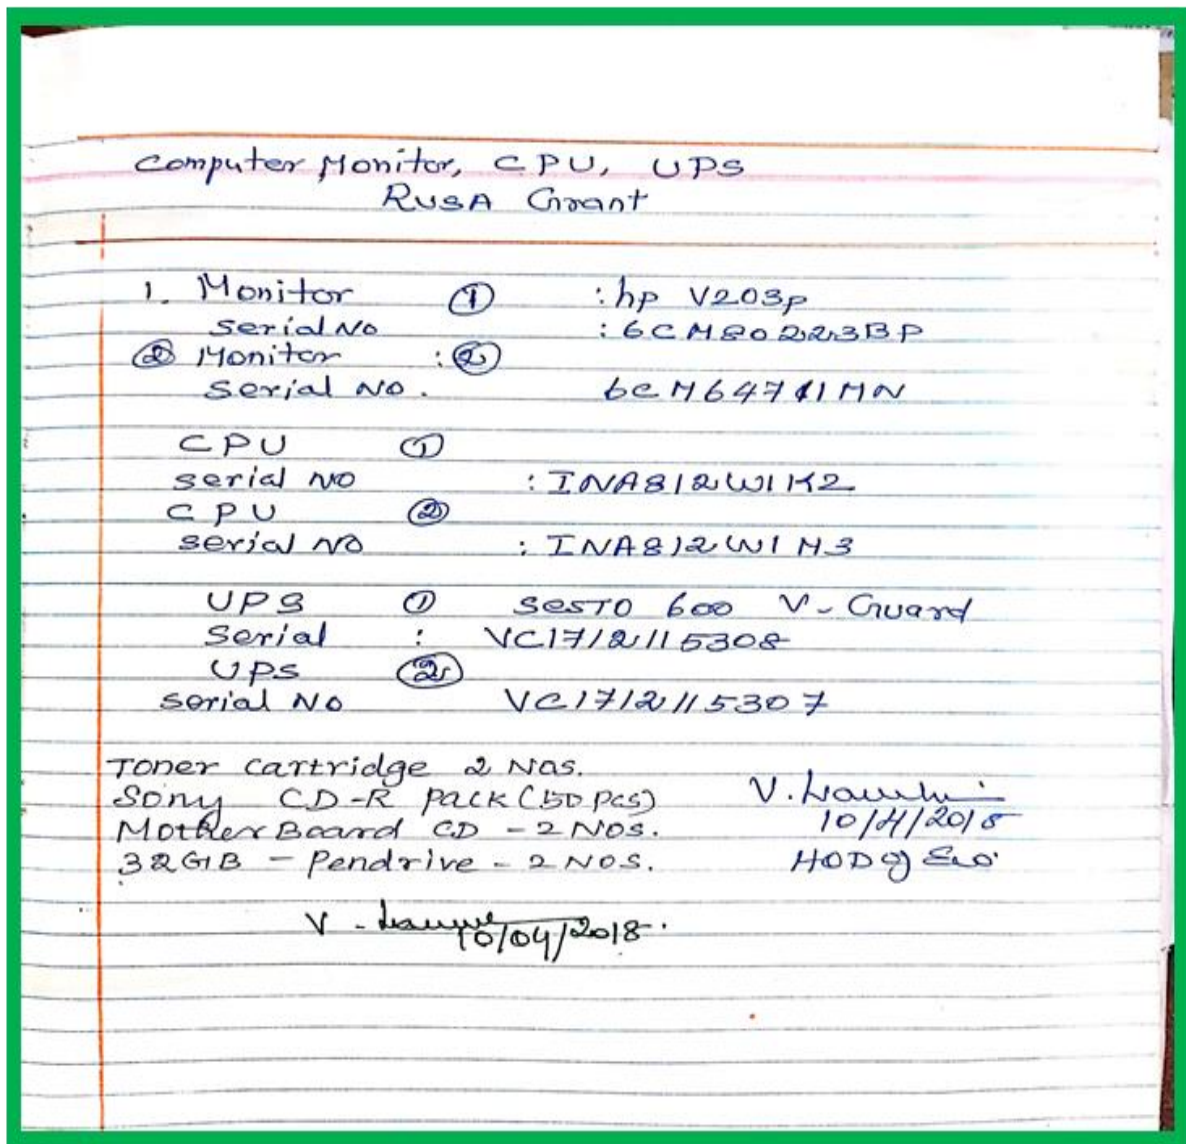 Computer Monitor, CPU, UPS
RUSA Grant
1. Monitor ① : hp V203p
serial No : 6CM80223BP
② Monitor : ②
serial No. 6CM64711MN
CPU ①
serial No : INA812W1K2
CPU ②
serial No : INA812W1M3
UPS ① SESTO 600 V-Guard
Serial : VC1712115308
UPS ②
serial No VC1712115307
Toner cartridge 2 Nos.
Sony CD-R pack (50 pcs) V.
Mother Board CD - 2 NOS. 10/4/2018
32GB - Pendrive - 2 NOS. HOD of
V. 10/04/2018.